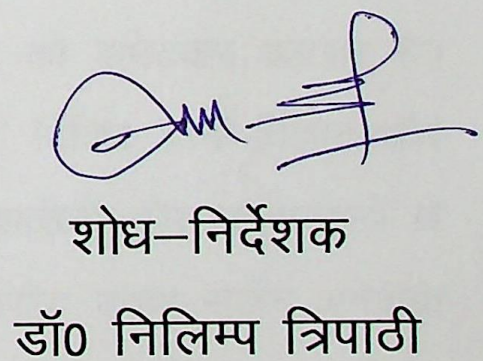 शोध–निर्देशक
डॉ0 निलिम्प त्रिपाठी